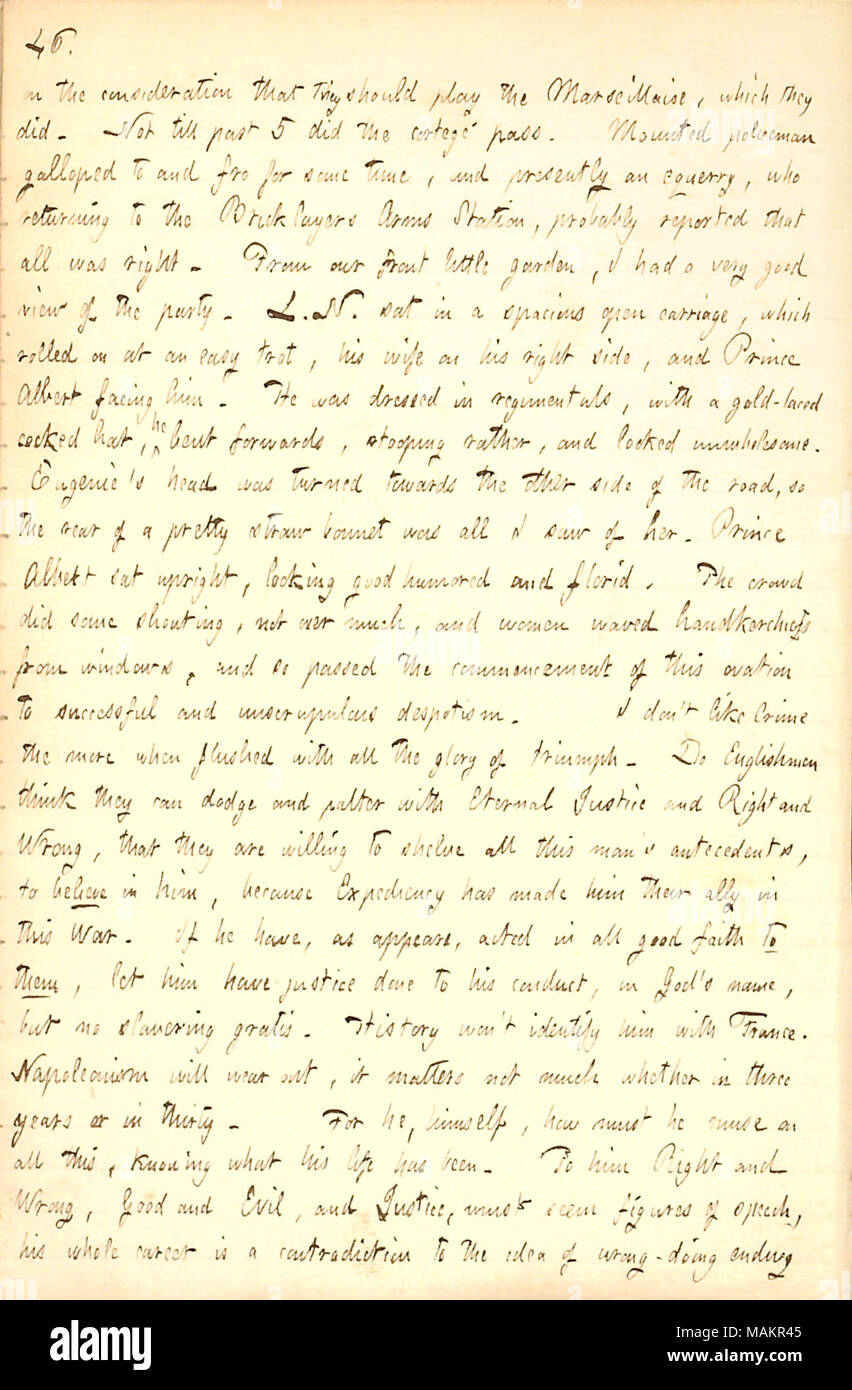 46.
on the consideration that they should play the Marseillaise, which they
did. Not till past 5 did the cortegé pass. Mounted policeman
galloped to and fro for some time, and presently an equerry, who
returning to the Bricklayers Arms Station, probably reported that
all was right. From our front little garden, I had a very good
view of the party. L. N. sat in a spacious open carriage, which
rolled on at an easy trot, his wife on his right side, and Prince
Albert facing him. He was dressed in regimentals, with a gold-laced
cocked hat, he bent forwards, stooping rather, and looked unwholesome.
Eugenie's head was turned towards the other side of the road, so
the rear of a pretty straw bonnet was all I saw of her. Prince
Albert sat upright, looking good humored and florid. The crowd
did some shouting, not over much, and women waved handkerchiefs
from windows, and so passed the commencement of this ovation
to successful and unscrupulous despotism. I don't like Crime
the more when flushed with all the glory of triumph. Do Englishmen
think they can dodge and palter with Eternal Justice and Right and
Wrong, that they are willing to shelve all this man's antecedents,
to believe in him, because Expediency has made him their ally in
this War. If he have, as appears, acted in all good faith to
them, let him have justice done to his conduct, in God's name,
but no slavering gratis. History won't identify him with France.
Napoleonism will wear out, it matters not much whether in three
years or in thirty. For he, himself, how must he muse on
all this, knowing what his life has been. To him Right and
Wrong, Good and Evil, and Justice, must seem figures of speech,
his whole career is a contradiction to the idea of wrong-doing ending
alamy
Image ID: MAKR45
www.alamy.com